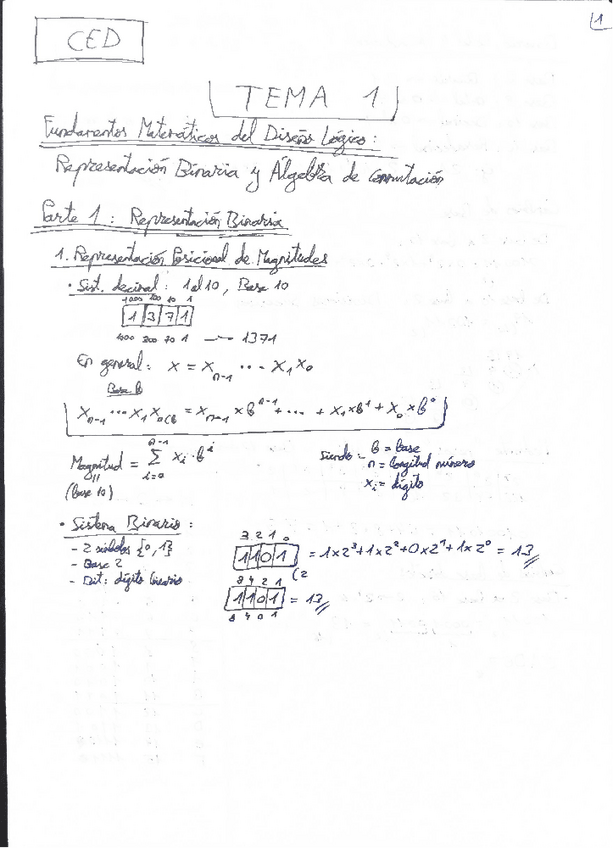 1
CED
TEMA 1
Fundamentos Matemáticos del Diseño Lógico:
Representación Binaria y Álgebra de conmutación
Parte 1: Representación Binaria
1. Representación Posicional de Magnitudes
• Sist. decimal: 1 al 10, Base 10
1000 100 10 1
1 3 7 1
1000 300 70 1 → 1371
En general: x = x_{n-1} ... x_1 x_0
Base b
x_{n-1} ... x_1 x_0 (b = x_{n-1} × b^{n-1} + ... + x_1 × b^1 + x_0 × b^0
Magnitud = Σ_{i=0}^{n-1} x_i · b^i
(base 10)
Siendo:
b = base
n = longitud número
x_i = dígito
• Sistema Binario:
- 2 símbolos {0, 1}
- Base 2
- Bit: dígito binario
3 2 1 0
1 1 0 1 (2 = 1×2^3 + 1×2^2 + 0×2^1 + 1×2^0 = 13
8 4 2 1
1 1 0 1 = 13
8 4 0 1